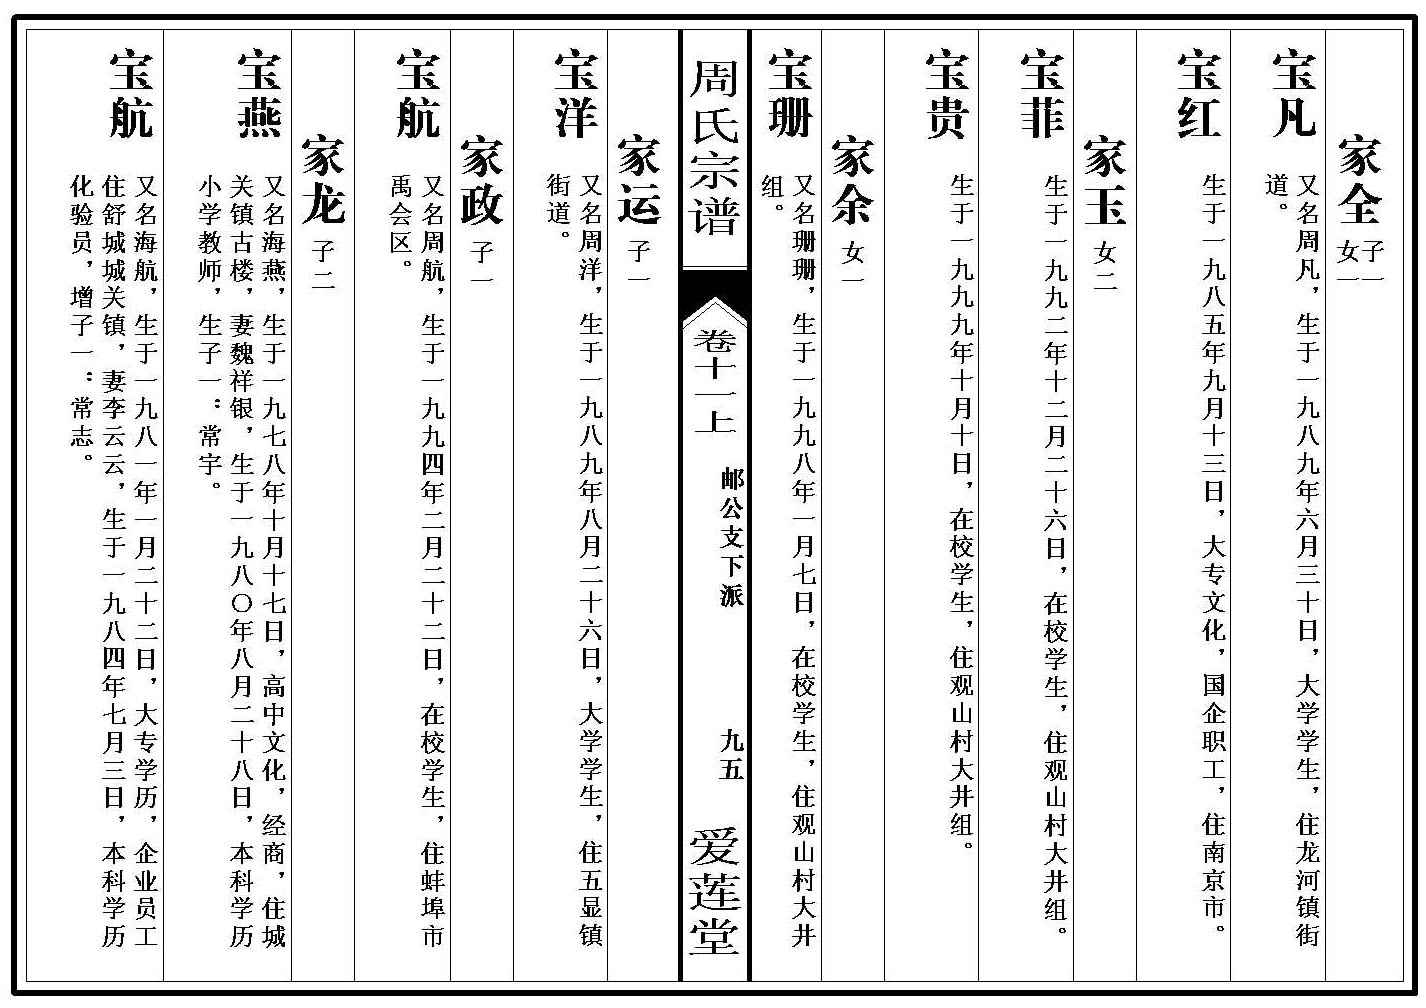 家全 子一 女一
宝凡
又名周凡，生于一九八九年六月三十日，大学学生，住龙河镇街
道。
宝红
生于一九八五年九月十三日，大专文化，国企职工，住南京市。
家玉 女二
宝菲
生于一九九二年十二月二十六日，在校学生，住观山村大井组。
宝贵
生于一九九九年十月十日，在校学生，住观山村大井组。
家余 女一
宝珊
又名珊珊，生于一九九八年一月七日，在校学生，住观山村大井
组。
周氏宗谱
卷十一上
邮公支下派
九五
爱莲堂
家运 子一
宝洋
又名周洋，生于一九八九年八月二十六日，大学学生，住五显镇
街道。
家政 子一
宝航
又名周航，生于一九九四年二月二十二日，在校学生，住蚌埠市
禹会区。
家龙 子二
宝燕
又名海燕，生于一九七八年十月十七日，高中文化，经商，住城
关镇古楼，妻魏祥银，生于一九八〇年八月二十八日，本科学历
小学教师，生子一：常宇。
宝航
又名海航，生于一九八一年一月二十二日，大专学历，企业员工
住舒城城关镇，妻李云云，生于一九八四年七月三日，本科学历
化验员，增子一：常志。